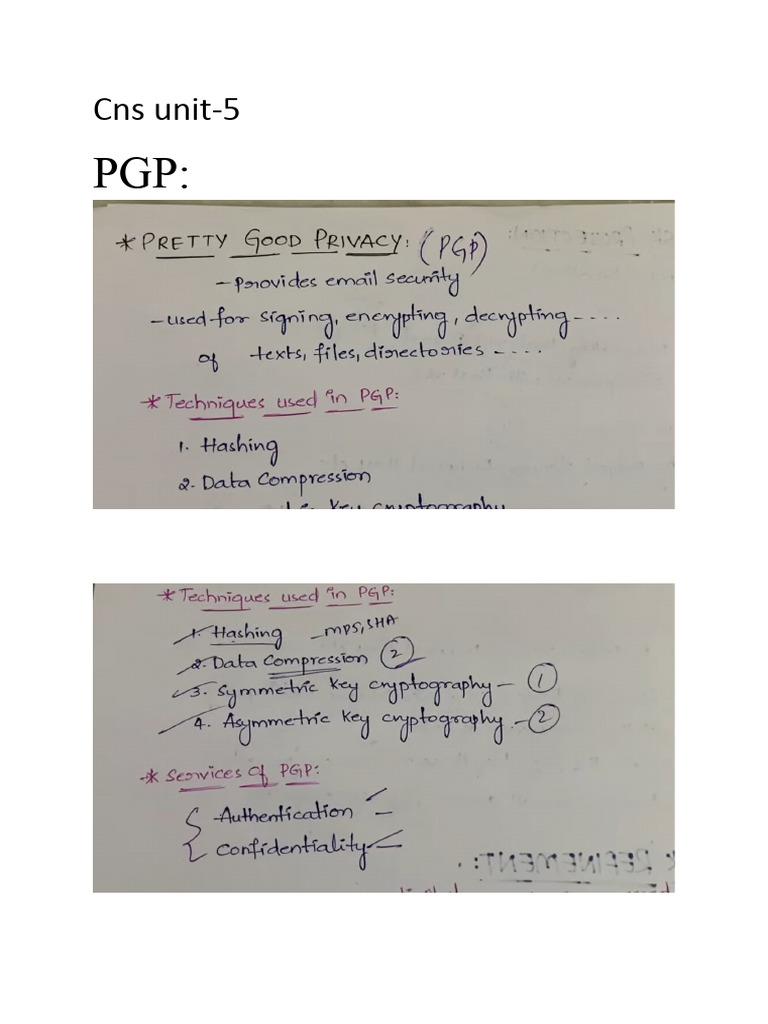 Cns unit-5
PGP:
* PRETTY GOOD PRIVACY: (PGP)
- Provides email security
- used for signing, encrypting, decrypting - . . . .
of texts, files, directories - . . . .
* Techniques used in PGP:
1. Hashing
2. Data Compression
Key cryptography
* Techniques used in PGP:
1. Hashing - MD5, SHA
2. Data Compression 2
3. Symmetric key cryptography - 1
4. Asymmetric key cryptography - 2
* Services of PGP:
Authentication -
Confidentiality -
REFINEMENT: